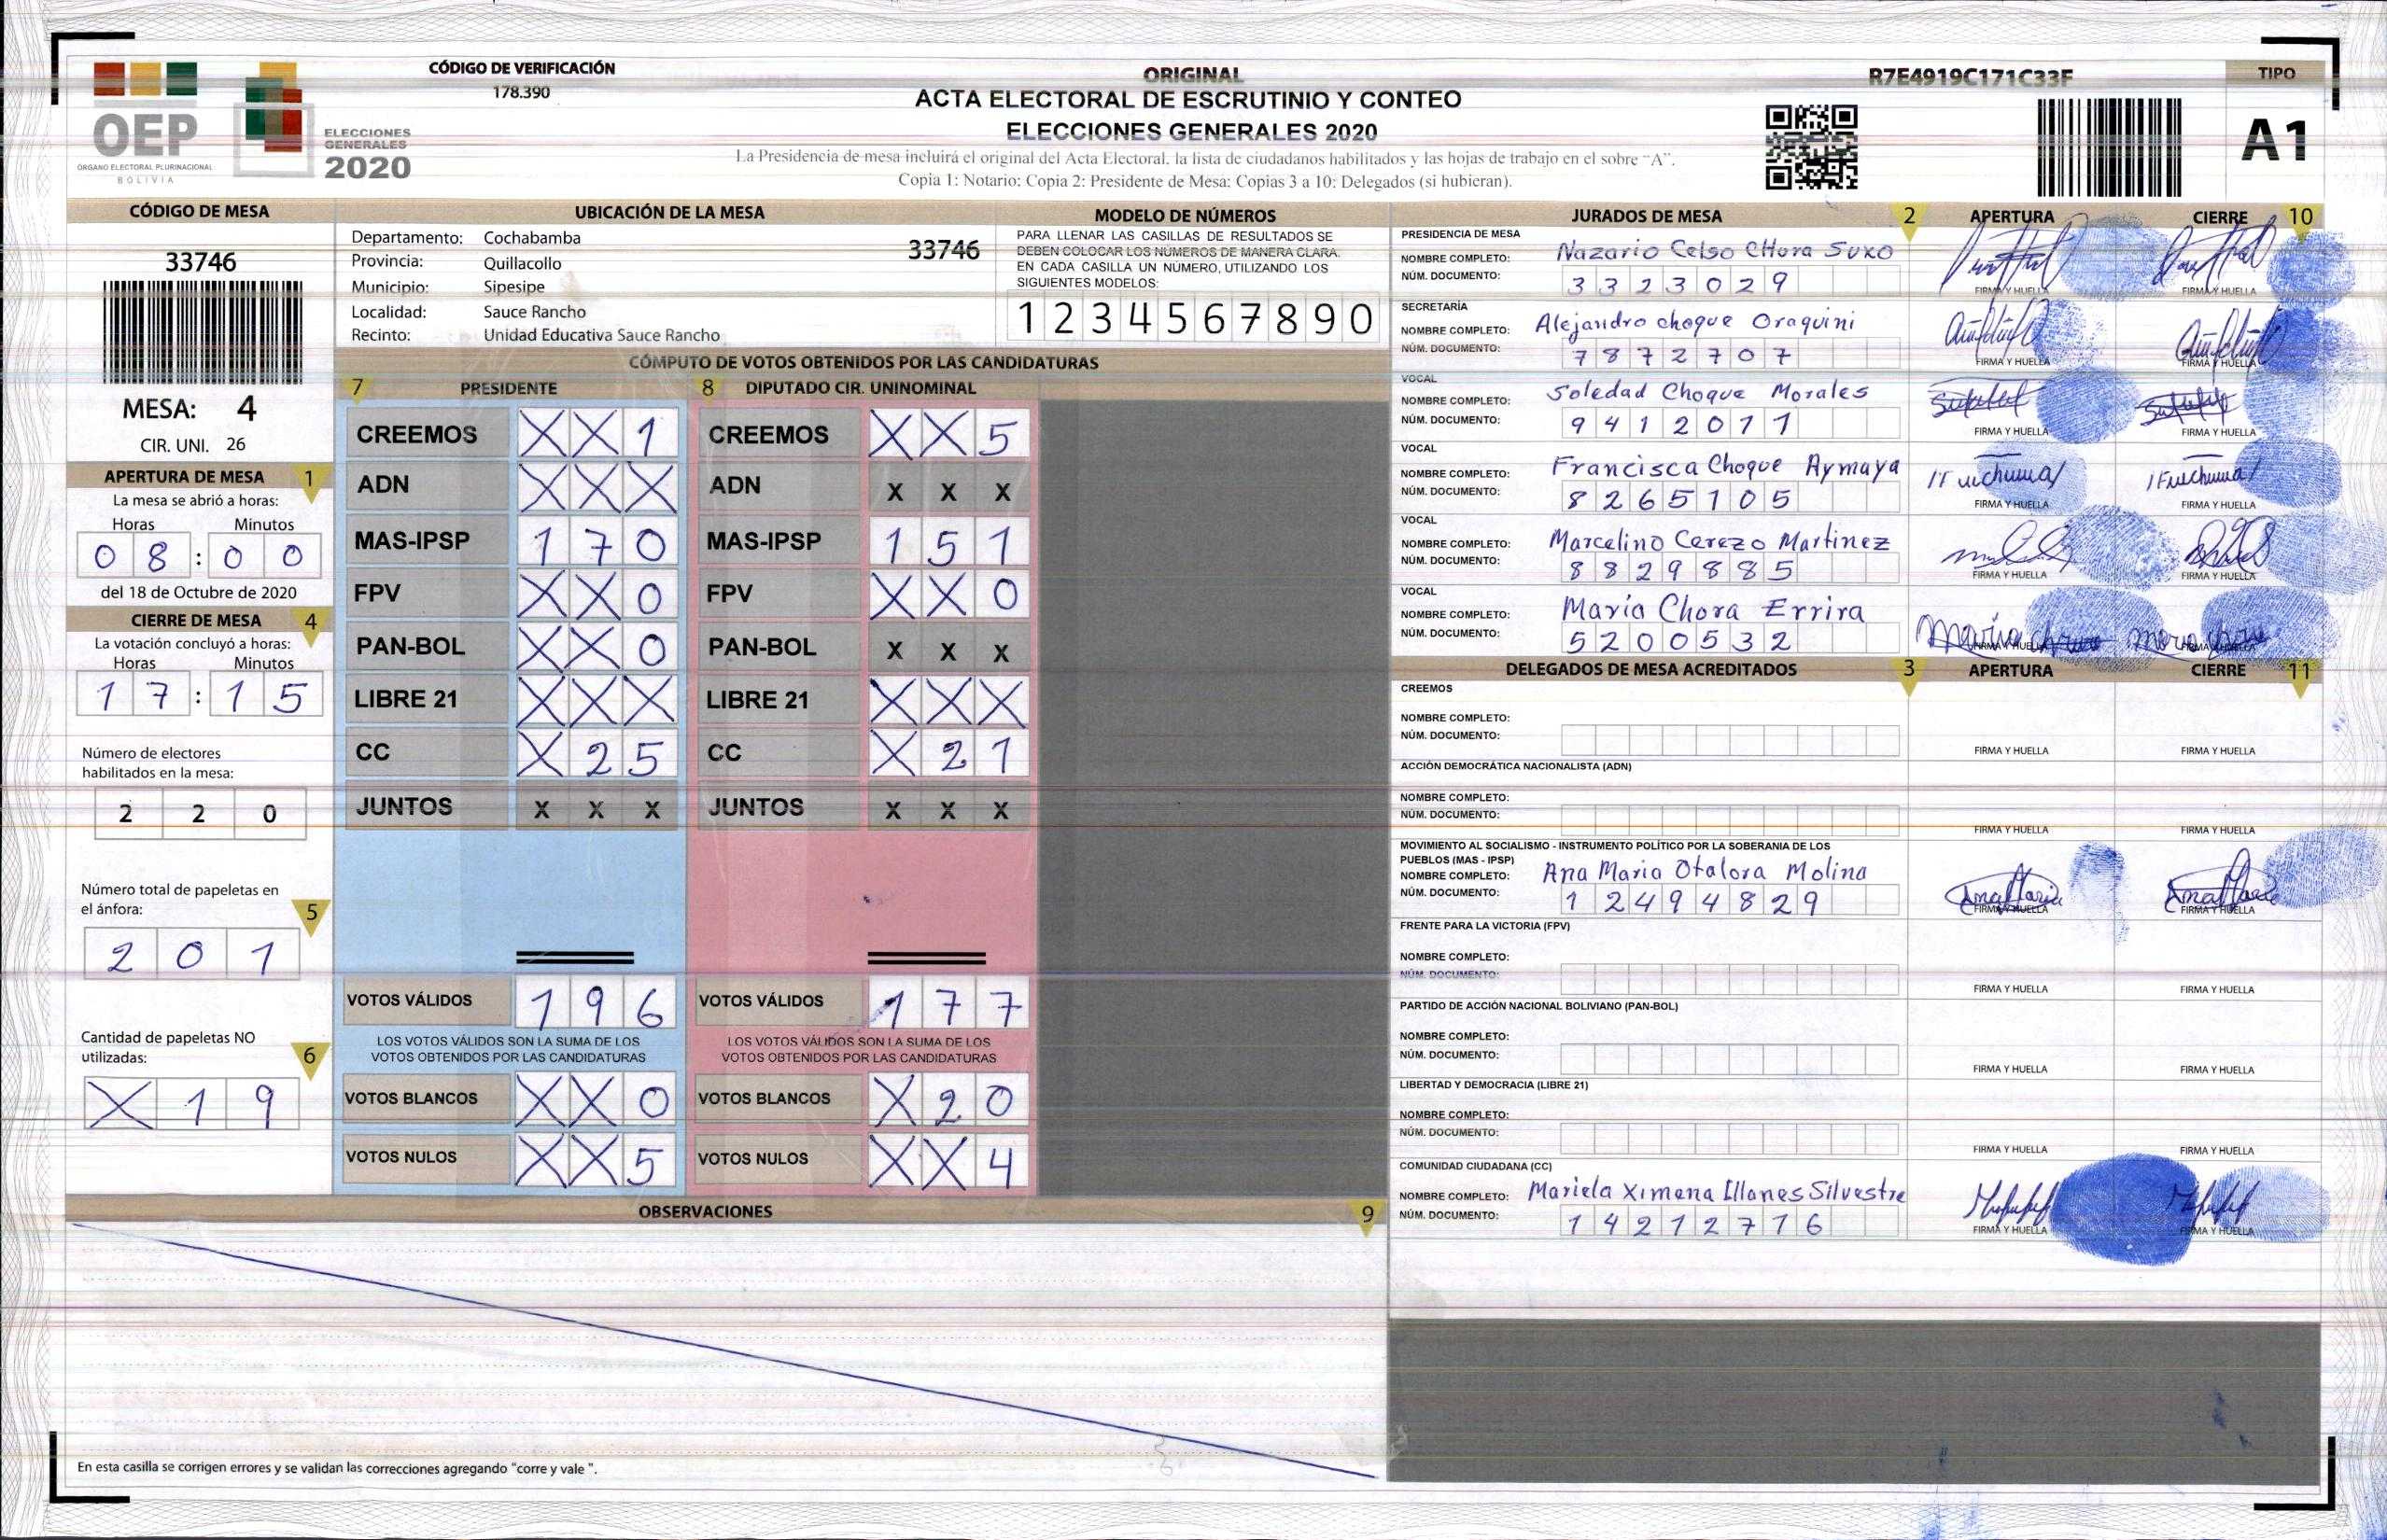 CÓDIGO DE VERIFICACIÓN
178.390
ORIGINAL
ACTA ELECTORAL DE ESCRUTINIO Y CONTEO
ELECCIONES GENERALES 2020
La Presidencia de mesa incluirá el original del Acta Electoral, la lista de ciudadanos habilitados y las hojas de trabajo en el sobre "A".
Copia 1: Notario; Copia 2: Presidente de Mesa; Copias 3 a 10: Delegados (si hubieran).
R7E4919C171C33F
TIPO
A1
OEP
ÓRGANO ELECTORAL PLURINACIONAL
BOLIVIA
ELECCIONES
GENERALES
2020
CÓDIGO DE MESA
33746
MESA: 4
CIR. UNI. 26
APERTURA DE MESA 1
La mesa se abrió a horas:
Horas Minutos
0 8 : 0 0
del 18 de Octubre de 2020
CIERRE DE MESA 4
La votación concluyó a horas:
Horas Minutos
1 7 : 1 5
Número de electores
habilitados en la mesa:
2 2 0
Número total de papeletas en
el ánfora: 5
2 0 1
Cantidad de papeletas NO
utilizadas: 6
X 1 9
UBICACIÓN DE LA MESA
Departamento: Cochabamba
33746
Provincia: Quillacollo
Municipio: Sipesipe
Localidad: Sauce Rancho
Recinto: Unidad Educativa Sauce Rancho
MODELO DE NÚMEROS
PARA LLENAR LAS CASILLAS DE RESULTADOS SE
DEBEN COLOCAR LOS NÚMEROS DE MANERA CLARA.
EN CADA CASILLA UN NÚMERO, UTILIZANDO LOS
SIGUIENTES MODELOS:
1 2 3 4 5 6 7 8 9 0
CÓMPUTO DE VOTOS OBTENIDOS POR LAS CANDIDATURAS
7 PRESIDENTE 8 DIPUTADO CIR. UNINOMINAL
CREEMOS X X 1 CREEMOS X X 5
ADN X X X ADN X X X
MAS-IPSP 1 7 0 MAS-IPSP 1 5 1
FPV X X 0 FPV X X 0
PAN-BOL X X 0 PAN-BOL X X X
LIBRE 21 X X X LIBRE 21 X X X
CC X 2 5 CC X 2 1
JUNTOS X X X JUNTOS X X X
VOTOS VÁLIDOS 1 9 6 VOTOS VÁLIDOS 1 7 7
LOS VOTOS VÁLIDOS SON LA SUMA DE LOS LOS VOTOS VÁLIDOS SON LA SUMA DE LOS
VOTOS OBTENIDOS POR LAS CANDIDATURAS VOTOS OBTENIDOS POR LAS CANDIDATURAS
VOTOS BLANCOS X X 0 VOTOS BLANCOS X 2 0
VOTOS NULOS X X 5 VOTOS NULOS X X 4
OBSERVACIONES 9
En esta casilla se corrigen errores y se validan las correcciones agregando "corre y vale ".
JURADOS DE MESA 2 APERTURA CIERRE 10
PRESIDENCIA DE MESA
NOMBRE COMPLETO: Nazario Celso CHora Suxo
NÚM. DOCUMENTO: 3 3 2 3 0 2 9
FIRMA Y HUELLA FIRMA Y HUELLA
SECRETARÍA
NOMBRE COMPLETO: Alejandro choque Oraquini
NÚM. DOCUMENTO: 7 8 7 2 7 0 7
FIRMA Y HUELLA FIRMA Y HUELLA
VOCAL
NOMBRE COMPLETO: Soledad Choque Morales
NÚM. DOCUMENTO: 9 4 1 2 0 7 1
FIRMA Y HUELLA FIRMA Y HUELLA
VOCAL
NOMBRE COMPLETO: Francisca Choque Aymaya
NÚM. DOCUMENTO: 8 2 6 5 1 0 5
FIRMA Y HUELLA FIRMA Y HUELLA
VOCAL
NOMBRE COMPLETO: Marcelino Cerezo Martinez
NÚM. DOCUMENTO: 8 8 2 9 8 8 5
FIRMA Y HUELLA FIRMA Y HUELLA
VOCAL
NOMBRE COMPLETO: Maria Chora Errira
NÚM. DOCUMENTO: 5 2 0 0 5 3 2
FIRMA Y HUELLA FIRMA Y HUELLA
DELEGADOS DE MESA ACREDITADOS 3 APERTURA CIERRE 11
CREEMOS
NOMBRE COMPLETO:
NÚM. DOCUMENTO:
FIRMA Y HUELLA FIRMA Y HUELLA
ACCIÓN DEMOCRÁTICA NACIONALISTA (ADN)
NOMBRE COMPLETO:
NÚM. DOCUMENTO:
FIRMA Y HUELLA FIRMA Y HUELLA
MOVIMIENTO AL SOCIALISMO - INSTRUMENTO POLÍTICO POR LA SOBERANIA DE LOS
PUEBLOS (MAS - IPSP)
NOMBRE COMPLETO: Ana Maria Otalora Molina
NÚM. DOCUMENTO: 1 2 4 9 4 8 2 9
FIRMA Y HUELLA FIRMA Y HUELLA
FRENTE PARA LA VICTORIA (FPV)
NOMBRE COMPLETO:
NÚM. DOCUMENTO:
FIRMA Y HUELLA FIRMA Y HUELLA
PARTIDO DE ACCIÓN NACIONAL BOLIVIANO (PAN-BOL)
NOMBRE COMPLETO:
NÚM. DOCUMENTO:
FIRMA Y HUELLA FIRMA Y HUELLA
LIBERTAD Y DEMOCRACIA (LIBRE 21)
NOMBRE COMPLETO:
NÚM. DOCUMENTO:
FIRMA Y HUELLA FIRMA Y HUELLA
COMUNIDAD CIUDADANA (CC)
NOMBRE COMPLETO: Mariela Ximena Illanes Silvestre
NÚM. DOCUMENTO: 1 4 2 1 2 7 1 6
FIRMA Y HUELLA FIRMA Y HUELLA